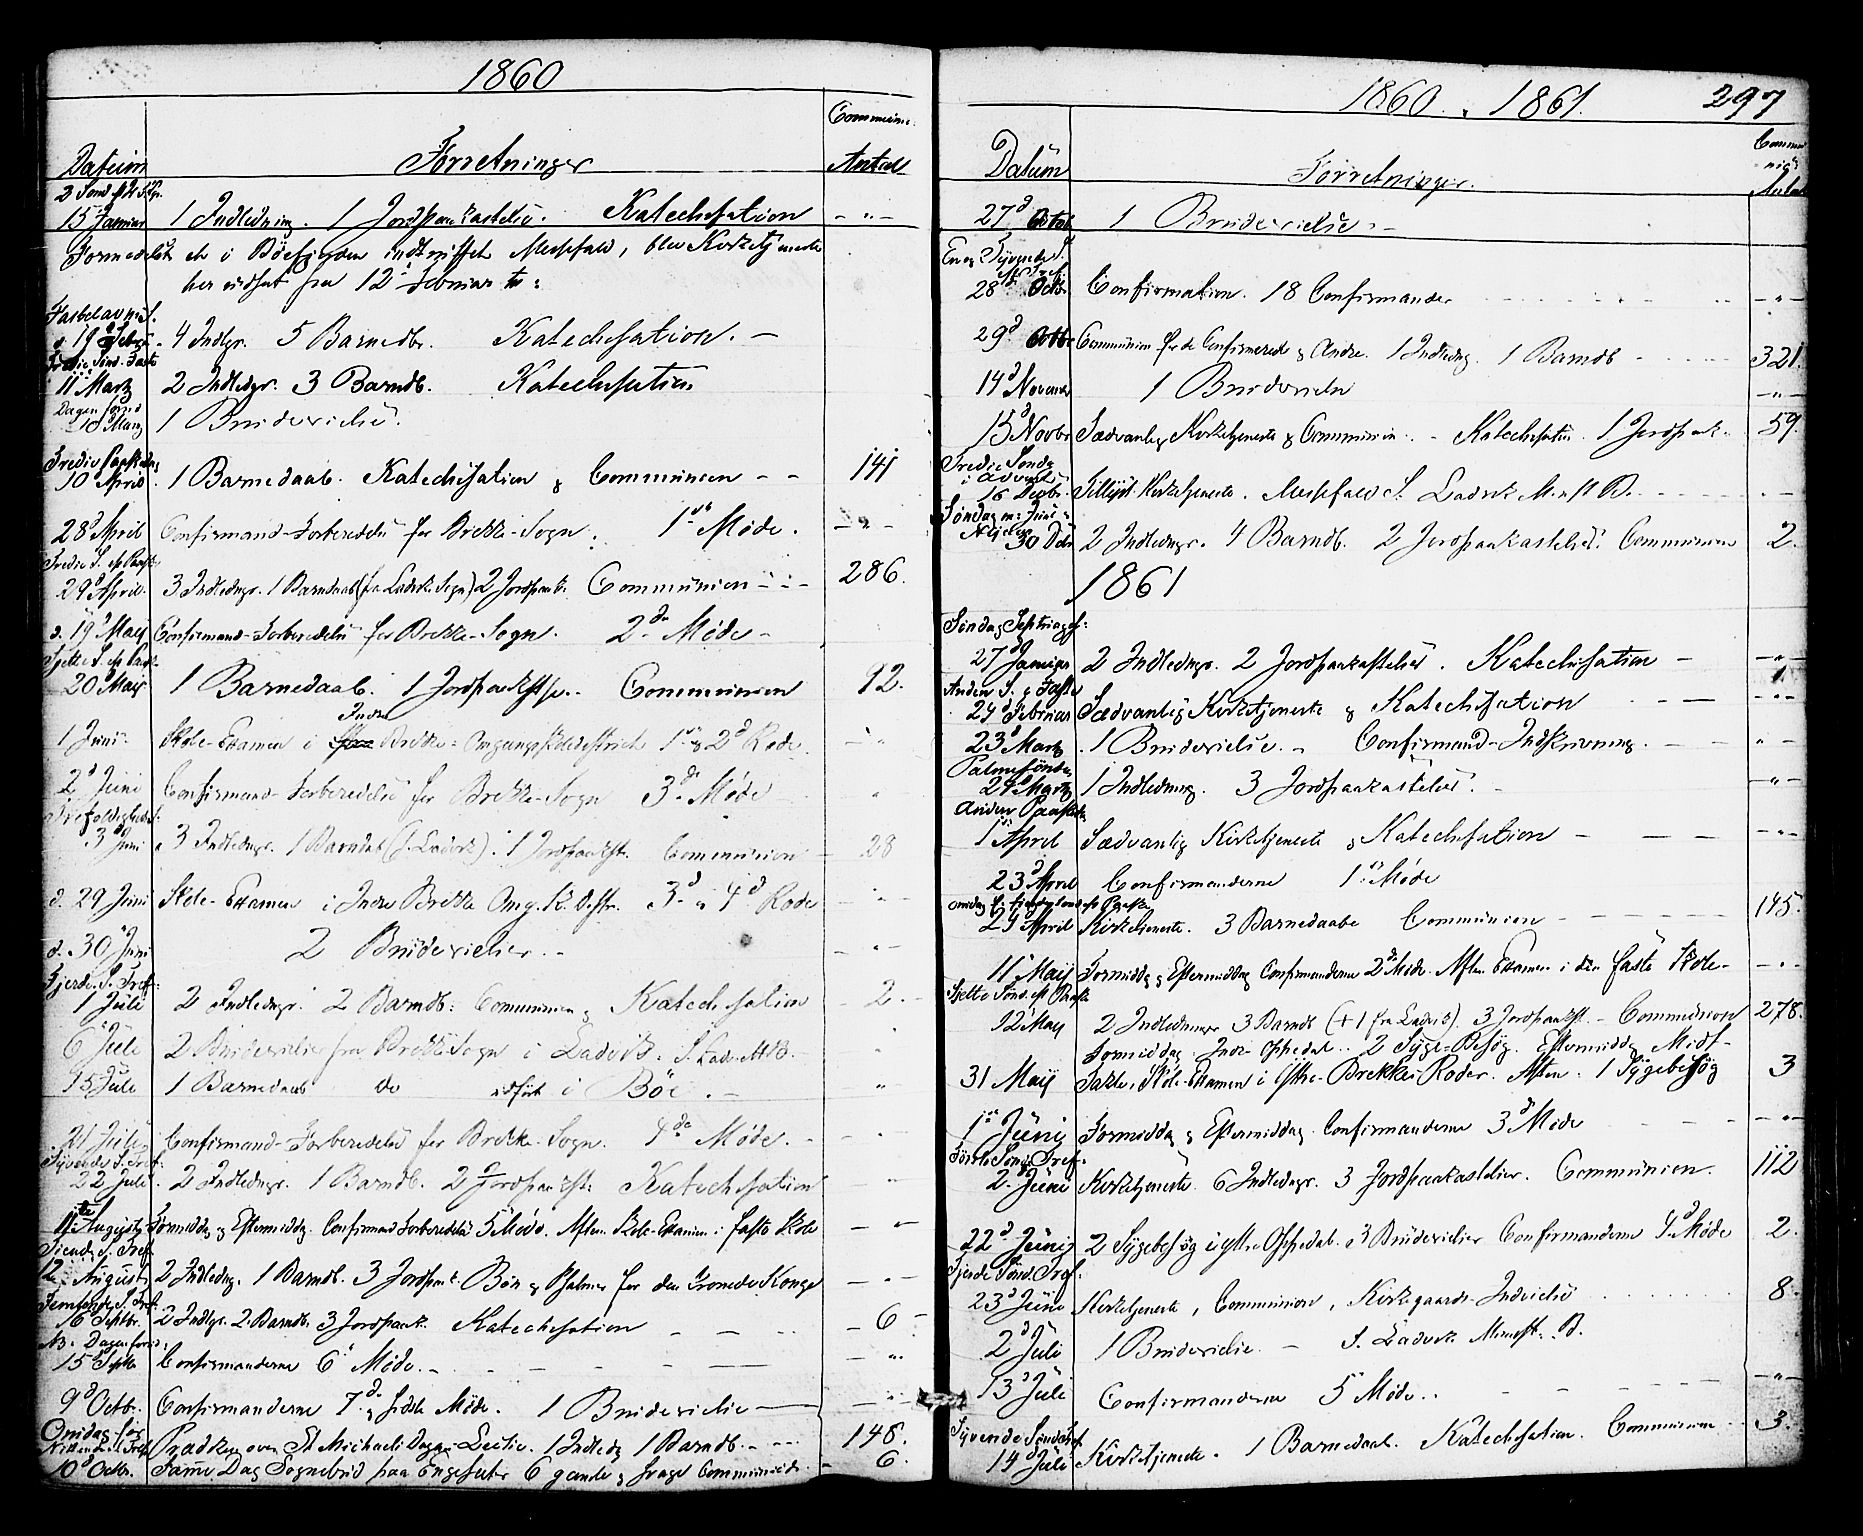 1860
Commun:
Datum Forretninger Antal
2 Sønd.
15 Januar 1 Indledning. 1 Jordpaakastelse. Katechisation - " -
Formedelst de i Böefjorden indtruffet Mishfald, blev Kirketjeneste
her udsat fra 12 Februar
Fastelavns S.
d. 19 Febr. 4 Indlgr. 5 Barnedb. Katechisation. -
Tredie Sönd. Faste
11 Martz 2 Indledgr. 3 Barndb. Katechisation
Dagen forud
10 Martz 1 Brudevielse.
Tredie Paaskedag
10 April 1 Barnedaab. Katechisation & Communion - - 141
28 April Confirmand-Forberedelse for Brekke-Sogn. 1ste Møde. - " -
Tredie S. ef. Paaske
29 April. 3 Indledngr. 1 Barnedaab (fra Ladvik Sogn) 2 Jordpaak. Communion - - 286.
d. 19 Maij Confirmand-Forberedelse for Brekke-Sogn. 2de Møde -
Sjette S. ef. Paask.
20 Maij 1 Barnedaab. 1 Jordpaakstse. Communion 92.
Indre
1 Juni Skole-Examen i Brekke Omgangsskoledistrict 1ste & 2d Rode. - " -
2d Juni Confirmand Forberedelse for Brekke-Sogn 3de Møde "
Trefoldigheds S.
3 Juni 3 Indledngr. 1 Barndab (f. Ladvik). 1 Jordpaakst. Communion - 28
d. 29 Juni Skole-Examen i Indre Brekke Omg. Sk. Distr. 3d & 4d Rode - " -
d. 30 Juni 2 Brudevielser. - " -
Fjerde S. Tref:
1 Juli 2 Indledngr. 2 Barndb: Communion & Katechisation - 2. -
6 Juli 2 Brudevielser fra Brekke Sogn i Ladvik. S. Ladv. M. B. "
15 Juli 1 Barnedaab do udført i Böe. - "
21 Juli Confirmand-Forberedelse for Brekke-Sogn. 4de Møde. - - " -
Syvende S. Tref:
22 Juli. 2 Indledngr. 1 Barndb. 2 Jordpaakst: Katechisation - " -
11te Augusty Formiddg & Eftermiddg. Confirmand Forberedelse 5 Møde. Aften Skole-Examen i faste Skole - " -
Tiende S. Tref.
12 August 2 Indledng. 1 Barndb. 3 Jordpaak. Bøn & Psalmer for den kronede Konge - " -
Femtende S. Tref.
16 Septbr. 2 Indlgr. 2 Barndb. 3 Jordpaak. Katechisation - - - 6 -
NB. Dagen forud:
15 Septbr Confirmanderne 6 Møde. - - - - " -
9d Octbr. Confirmanderne 7de & sidste Møde. 1 Brudevielse - - " -
Onsdag før
Nittende S. Tref.
10d Octbr. Prædken over St Michaeli Dags-Lectie. 1 Indledg 1 Barndb. - - - 148.
Samme Dag Sognebud paa Engeseter 6 gamle & svage Communic. 6.
1860. 1861. 297
Datum Forretninger. Communions Antal
27d Octob 1 Brudevielse. -
En og Tyvende S.
ef Tref.
28de Octbr Confirmation. 18 Confirmander - " -
29d Octbr Communion for de Confirmerede & Andre. 1 Indledng. 1 Barndb - - 321.
14d Novemb 1 Brudevielse - " -
15d Novbr Sædvanlig Kirketjeneste & Communion. - Katechisation. 1 Jordpaak. - 59
Tredie Sønda
i Advent
16 Decbr. Tillyst Kirketjeneste. Meshfald S. Ladvik Minist B. - - -
Søndag m: Juul &
Nytaar
30 Debr 2 Indledngr. 4 Barndb. 2 Jordpaakastelser. Communion 2.
1861
Søndag Septuages:
27d Januar 2 Indledngr. 2 Jordpaakastelser. Katechisation - - " -
Anden S. i Faste
24d Februar Sædvanlig Kirketjeneste & Katechisation - - - - " -
23d Martz 1 Brudevielse. - Confirmand-Indskrivning. - - - " -
Palmesøndag
24 Martz 1 Indledning. 3 Jordpaakastelser. - " -
Anden Paaskedag
1ste April Sædvanlig Kirketjeneste & Katechisation - - - - " -
23d April Confirmanderne 1ste Møde
Onsdag f. fjerde Sønd. ef Paaske
24 April Kirketjeneste. 3 Barnedaabe Communion - - - - 145.
11 Maij Formiddg & Eftermiddag Confirmanderne 2de Møde. Aften Examen i den faste Skole - - " -
Sjette Sønd. ef Paask:
12 Maij 2 Indledninger 3 Barndb (+1 fra Ladvik). 3 Jordpaakst. - Communion 278.
Formiddag Indre Oppedal. 2 Syge-Besøg. Eftermiddg Midt-
31 Maij Skole-Examen i Yttre-Brekkes Roder. Aften. 1 Sygebesøg 3
1ste Junij Formiddag & Eftermiddag. Confirmanderne 3d Møde - " -
Første Sønd. Tref.
2 Juni Kirketjeneste. 6 Indledngr. 3 Jordpaakastelser. Communion. 112
22d Junij 2 Sygebesøg i Yttre Oppedal. 3 Brudevielser Confirmanderne 4d Møde 2.
Fjerde Sønd. Tref:
23d Juni Kirketjeneste, Communion, Kirkegaards-Indvielse 8.
2d Juli 1 Brudevielse. - S. Ladvik Minist. B.
13d Juli Confirmanderne 5 Møde. - - - " -
Syvende Sønd. Tref
14d Juli Kirketjeneste. 1 Barnedaab. Katechisation. Communion - - 3.